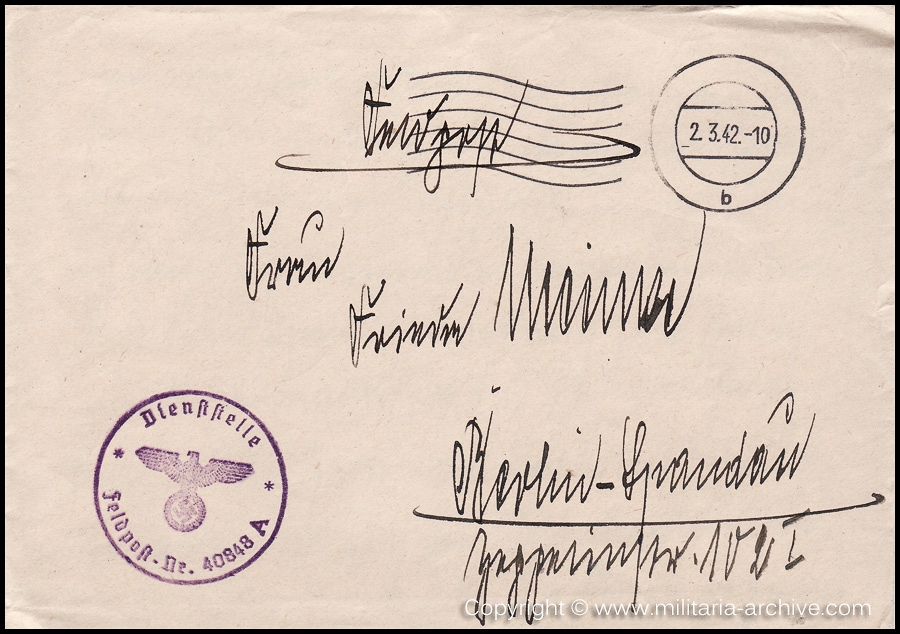 Feldpost
2.3.42.-10
b
Frau
Frieda
Berlin-Spandau
Zeppelinstr. 102 I
Dienststelle
* *
Feldpost-Nr. 40848 A
Copyright © www.militaria-archive.com